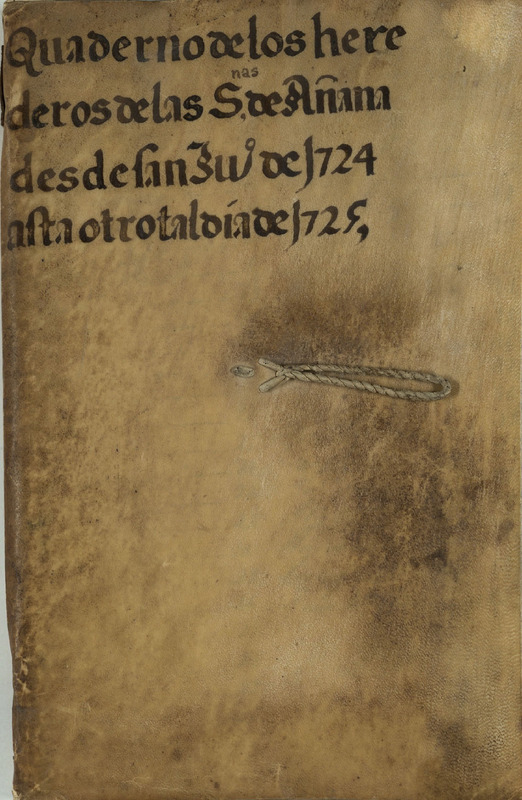 Quaderno de los here
deros de las S.nas de Añana
desde san Ju.º de 1724
asta otro tal dia de 1725,